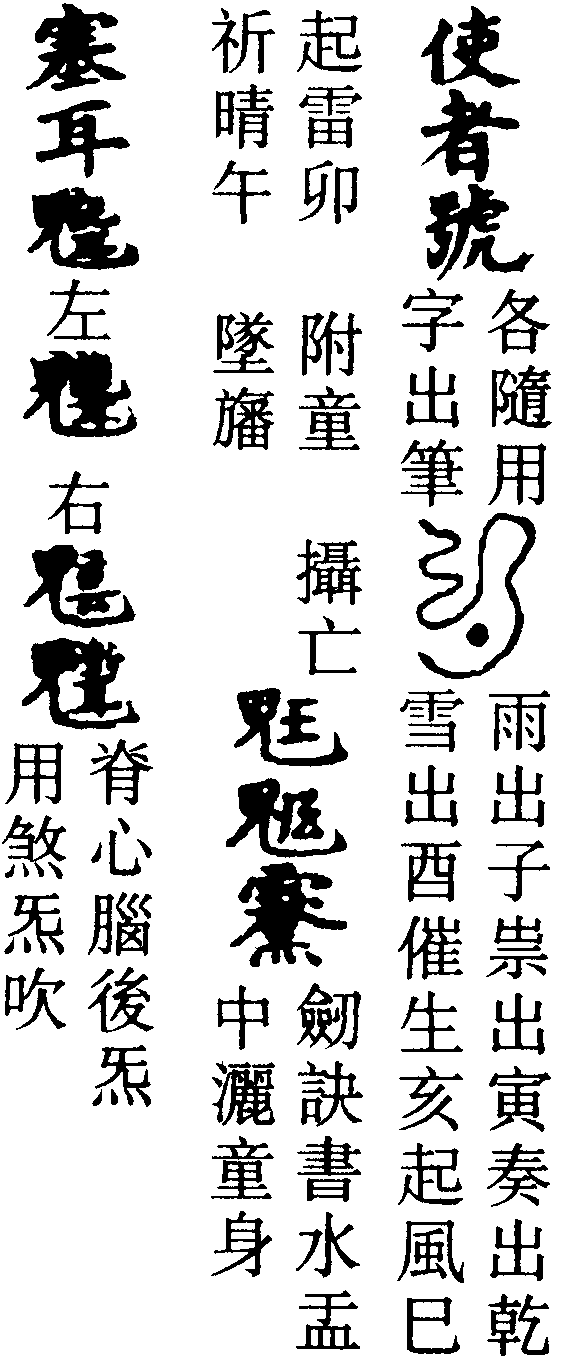 使者號
各隨用
字出筆
雨出子祟出寅奏出乾
雪出酉催生亥起風巳
起雷卯
祈晴午
附童
墜旛
攝亡
劒訣書水盂
中灑童身
塞耳
左
右
脊心腦後炁
用煞炁吹